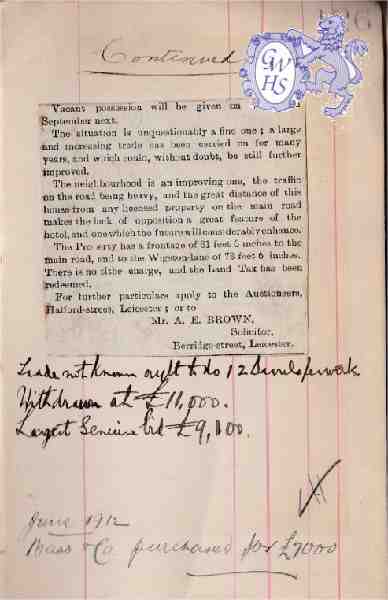 Continued
GWHS
Vacant possession will be given on
September next.
The situation is unquestionably a fine one; a large
and increasing trade has been carried on for many
years, and which could, without doubt, be still further
improved.
The neighbourhood is an improving one, the traffic
on the road being heavy, and the great distance of this
house from any licensed property on the main road
makes the lack of opposition a great feature of the
hotel, and one which the future will considerably enhance.
The Property has a frontage of 81 feet 6 inches to the
main road, and to the Wigston-lane of 78 feet 6 inches.
There is no tithe charge, and the Land Tax has been
redeemed.
For further particulars apply to the Auctioneers,
Halford-street, Leicester; or to
Mr. A. E. BROWN,
Solicitor,
Berridge-street, Leicester.
Trade not known ought to do 12 Barrels per week
Withdrawn at £11,000.
Largest Genuine bid £9,100.
June 1912
Bass & Co. purchased for £7000